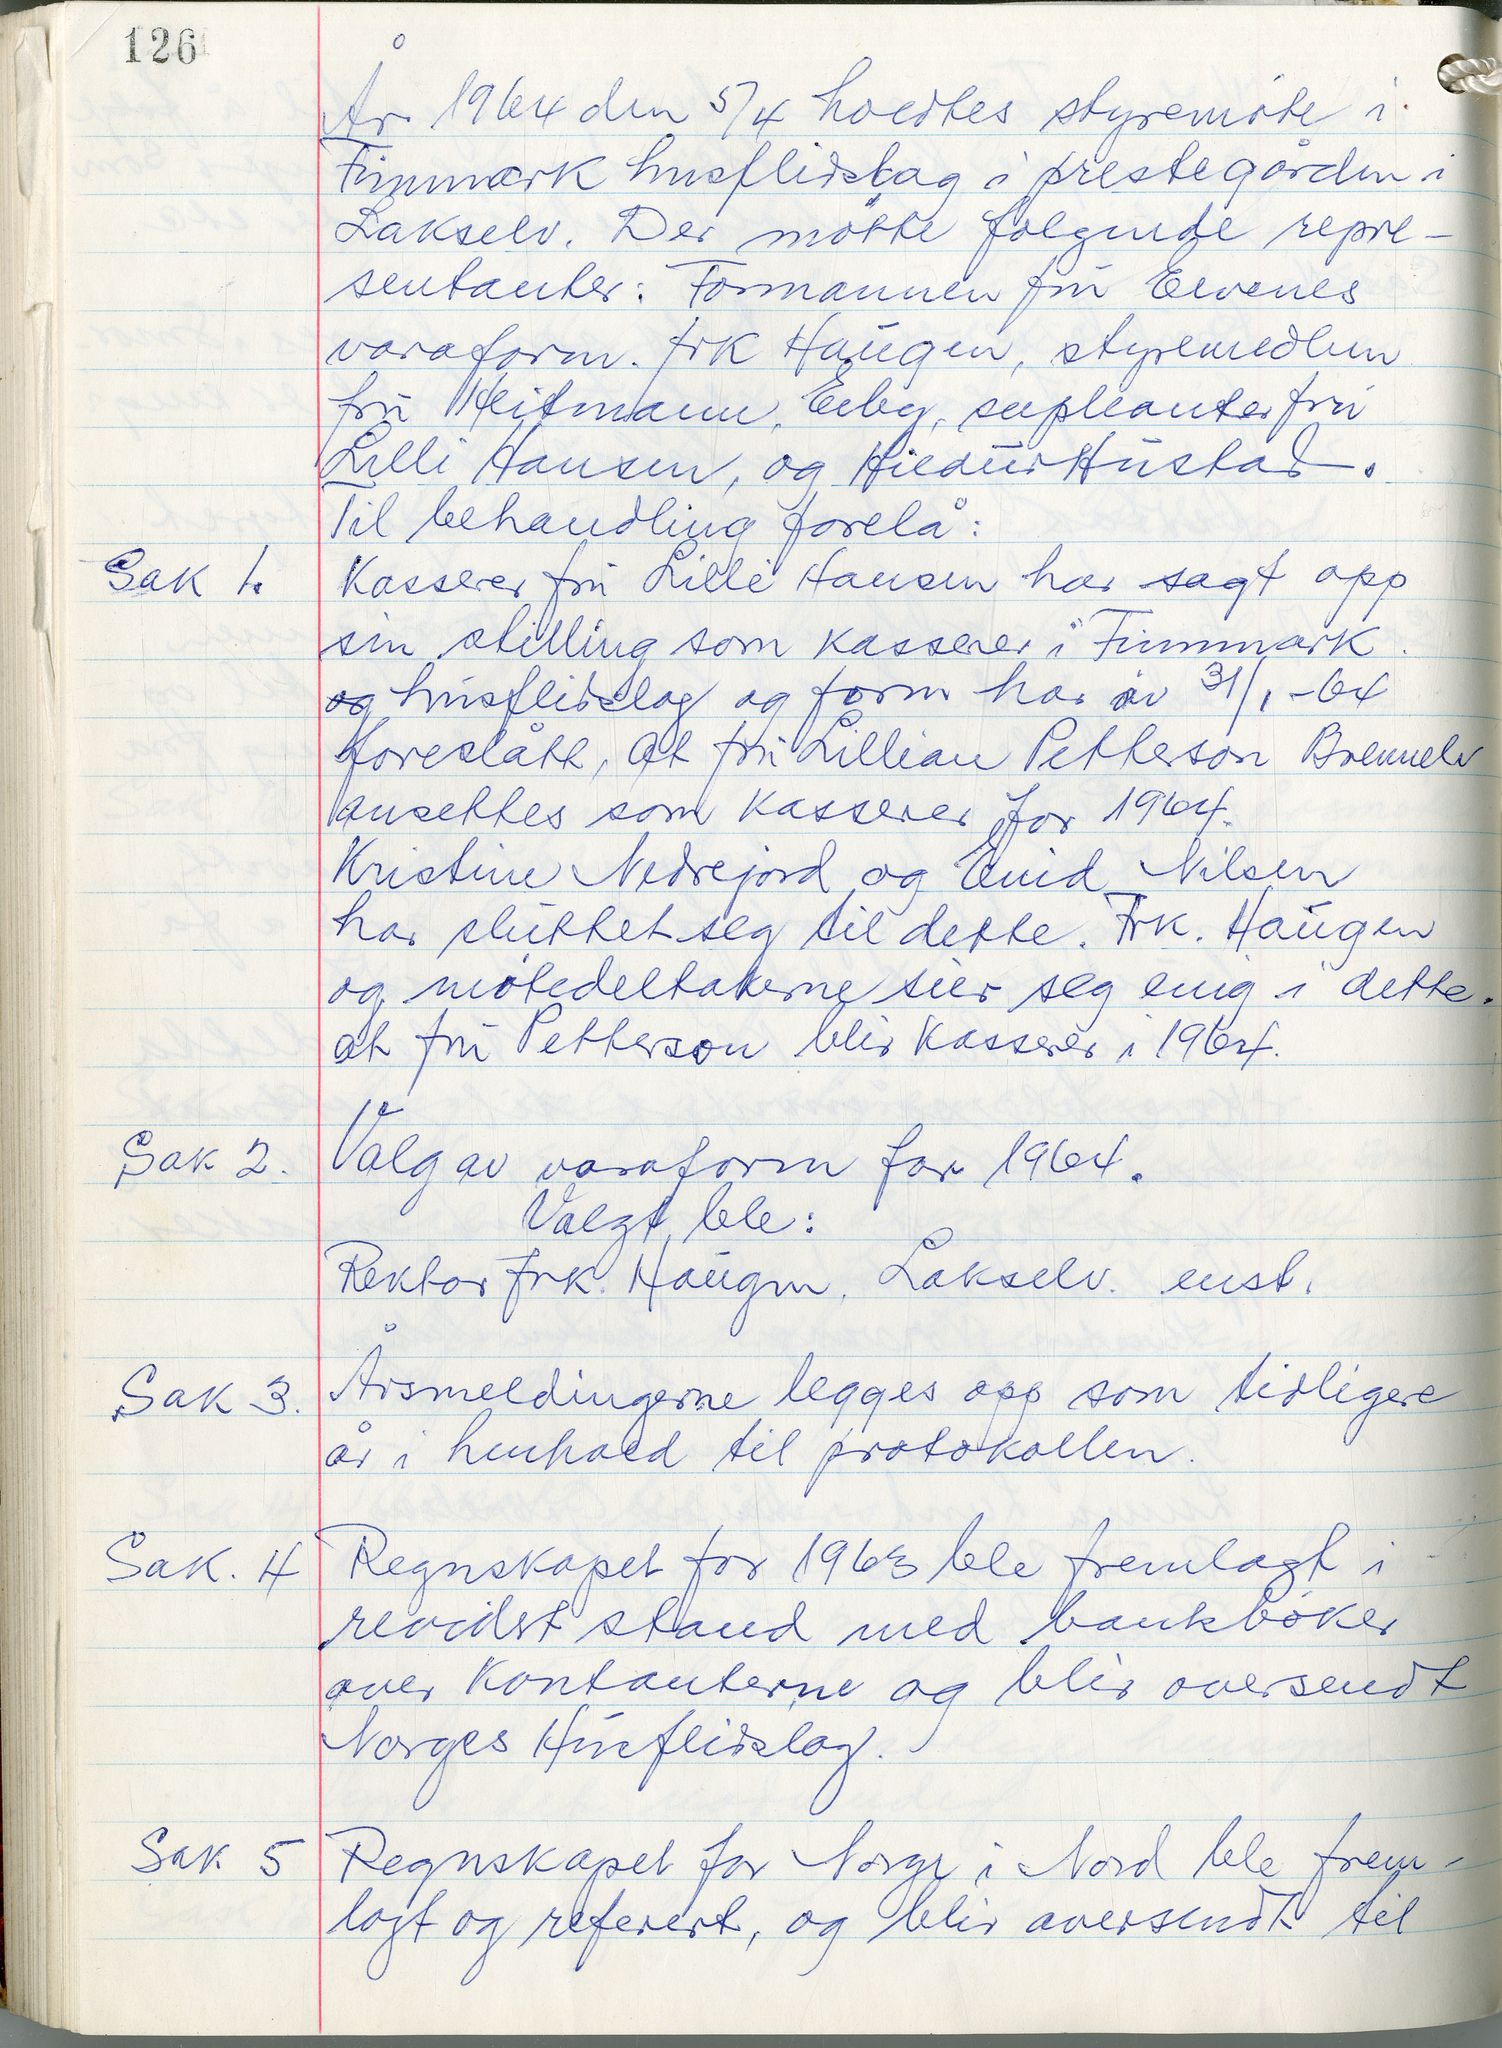 126
År 1964 den 5/4 holdtes styremöte i
Finnmark husflidslag i prestegården i
Lakselv. Der mötte fölgende repre-
sentanter: Formannen frú Elvenes
varaform. frk Haúgen, styremedlem
frú Heitmann, Erby, supleanter frú
Lilli Hansen, og Hildúr Hústad.
Til behandling forelå:
Sak 1. Kasserer frú Lilli Hansen har sagt opp
sin stilling som kasserer i Finnmark
og húsflidslag og form har av 31/1-64
foreslått, at frú Lillian Petterson Brennelv
ansettes som kasserer for 1964.
Kristine Nedrejord og Enid Nilsen
har slúttet seg til dette. Frk. Haúgen
og mötedeltakerne sier seg enig i dette.
at frú Petterson blir kasserer i 1964.
Sak 2. Valg av varaform for 1964.
Valgt ble:
Rektor frk. Haúgen, Lakselv. enst.
Sak 3. Årsmeldingerne legges opp som tidligere
år i henhold til protokollen.
Sak. 4 Regnskapet for 1963 ble fremlagt i
revidert stand med bankböker
over kontanterne og blir oversendt
Norges Húsflidslag.
Sak 5 Regnskapet for Norge i Nord ble frem-
lagt og referert, og blir oversendt til